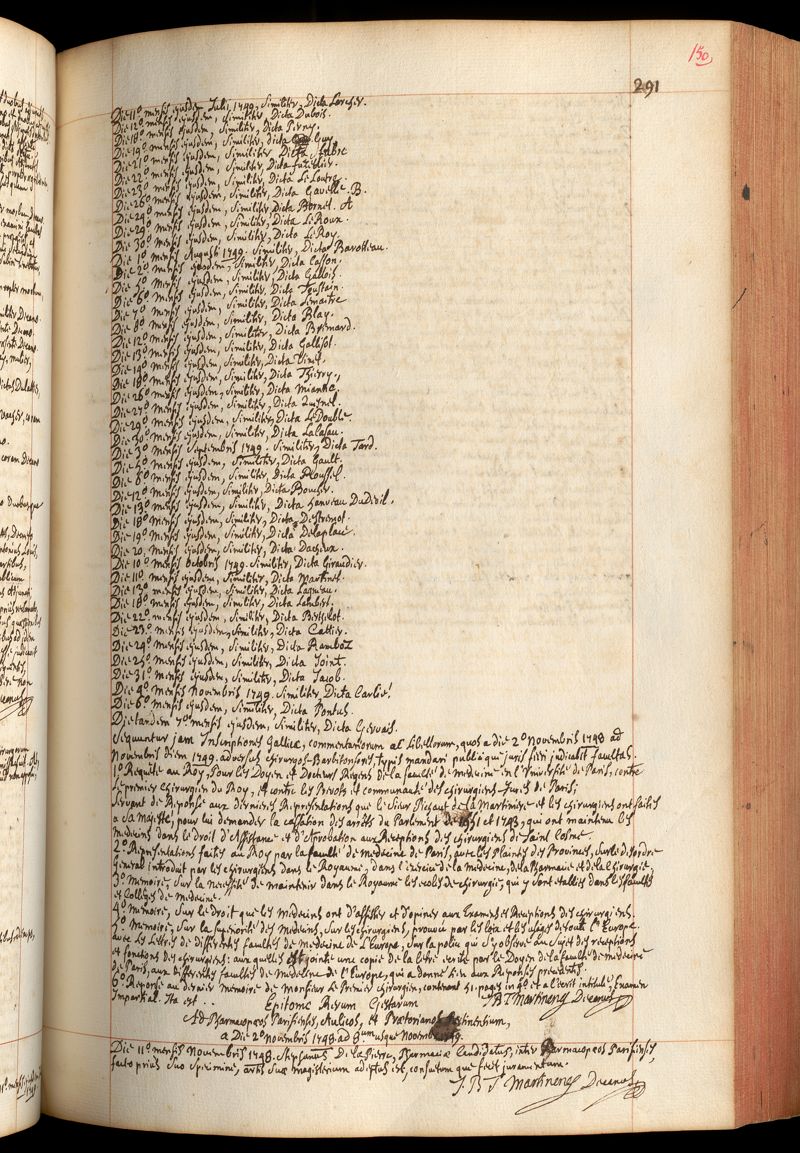 150
291
Die 11º mensis ejusdem Julii 1749. Similiter, Dicta Lercher.
Die 12º mensis ejusdem, Similiter, Dicta Dubois.
Die 18º mensis ejusdem, Similiter, Dicta Perny.
Die 19º mensis ejusdem, Similiter, dicta Guy
Die 21º mensis ejusdem, Similiter, Dicta Fabre
Die 22º mensis ejusdem, Similiter, Dicta
Die 23º mensis ejusdem, Similiter, Dicta Le Loutre.
Die 26º mensis ejusdem, Similiter, Dicta Gavelle. B.
Die mensis ejusdem, Similiter, Dicta Bornet. A
Die 29º mensis ejusdem, Similiter, Dicta Le Roux.
Die 30º mensis ejusdem, Similiter, Dicta Le Roy.
Die 1º mensis Augusti 1749. Similiter, Dicta Barottieau.
Die 2º mensis ejusdem, Similiter, Dicta Casson.
Die 5º mensis ejusdem, Similiter, Dicta Gallois.
Die 6º mensis ejusdem, Similiter, Dicta Toustain.
Die 7º mensis ejusdem, Similiter, Dicta Lemaitre
Die 8º mensis ejusdem, Similiter, Dicta Blay.
Die 12º mensis ejusdem, Similiter, Dicta Brimard.
Die 13º mensis ejusdem, Similiter, Dicta Gallisot.
Die 14º mensis ejusdem, Similiter, Dicta Vinet.
Die 18º mensis ejusdem, Similiter, Dicta Thierry.
Die 26º mensis ejusdem, Similiter, Dicta
Die 27º mensis ejusdem, Similiter, Dicta Quesnel.
Die 29º mensis ejusdem, Similiter, Dicta Le Double.
Die 30º mensis ejusdem, Similiter, Dicta LaCasau.
Die 3º mensis Septembris 1749. Similiter, Dicta Tard.
Die 5º mensis ejusdem, Similiter, Dicta Gault.
Die 6º mensis ejusdem, Similiter, Dicta Roussel.
Die 12º mensis ejusdem, Similiter, Dicta Boucher.
Die 13º mensis ejusdem, Similiter, Dicta hanveau Du Deuil.
Die 18º mensis ejusdem, Similiter, Dicta
Die 19º mensis ejusdem, Similiter, Dicta Delaplace.
Die 20. mensis ejusdem, Similiter, Dicta Dacheux.
Die 10º mensis Octobris 1749. Similiter, Dicta Giraudier.
Die 11º mensis ejusdem, Similiter, Dicta Martinet.
Die 17º mensis ejusdem, Similiter, Dicta
Die 18º mensis ejusdem, Similiter, Dicta Lambert.
Die 22º mensis ejusdem, Similiter, Dicta Berthelot.
Die 23º mensis ejusdem, Similiter, Dicta Cattier.
Die 24º mensis ejusdem, Similiter, Dicta Ramboz
Die 25º mensis ejusdem, Similiter, Dicta Joint.
Die 31º mensis ejusdem, Similiter, Dicta Jacob.
Die 4º mensis Novembris 1749. Similiter, Dicta Carlier.
Die 6º mensis ejusdem, Similiter, Dicta Pontus.
Die tandem 7º mensis ejusdem, Similiter, Dicta Gervais.
Sequuntur jam Inscriptiones Gallicæ, commentariorum ac Libellorum, quos a die 2º Novembris 1748 ad
Novembris diem 1749. adversus chirurgos-Barbitonsores, typis mandari publicique juris fieri judicavit facultas.
1º Requête au Roy, Pour les Doyen et Docteurs Regens de la faculté de medecine en l'Université de Paris, contre
Le premier Chirurgien du Roy, et contre les Prevots et communauté des chirurgiens-Jurés de Paris;
Servant de Réponse aux dernieres Représentations que le Sieur Pichaut de la Martiniere et les chirurgiens ont faites
a Sa Majesté, pour lui demander la cassation des arrêts du Parlement de 1551 et 1743, qui ont maintenu les
Médecins dans le Droit d'Assistance et d'Aprobation aux Receptions des chirurgiens de Saint Cosme.
2º Représentations faites au Roy par la faculté de médecine de Paris, avec les Plaintes des Provinces, Sur le désordre
General introduit par les chirurgiens dans le Royaume, dans l'exercice de la médecine, de la Pharmacie et de la Chirurgie.
3º Mémoire, Sur la necessité de maintenir dans le Royaume les ecoles de chirurgie, qui y Sont etablies dans les facultés
et Colléges de Médecine.
4º Mémoire, Sur le Droit que les Médecins ont d'assister et d'opiner aux Examens et Receptions des chirurgiens.
5º Mémoire, Sur la Superiorité des Médecins, Sur les chirurgiens, prouvée par les loix et les usages de toute l'Europe
avec les Lettres de Differentes facultés de Médecine de L'Europe, Sur la police qui S'y observe au Sujet des receptions
et fonctions des chirurgiens: aux quelles est jointe une copie de la lettre écrite par le Doyen de la faculté de médecine
de Paris, aux differentes facultés de Médecine de l'Europe, qui a donné lieu aux Réponses précedentes.
6º Réponse au dernier mémoire de Monsieur Le Premier chirurgien, contenant 51. pages in 4º et a l'écrit intitulé, Examen
Impartial. Ita est . . JBT Martinenq Decanus
Epitome Rerum Gestarum
Ad Pharmacopæos Parisienses, Aulicos, et Prætorianos Pertinentium,
a Die 2º Novembris 1748. ad 8um usque Novembris 49.
Die 11º mensis Novembris 1748. Stephanus De la Pierre, Pharmaciæ Candidatus, inter Pharmacopæos Parisienses,
facto prius Suo Specimine, artis Suæ magisterium adeptus est, consuetum que fecit juramentum.
J. B. T. Martinenq Decanus